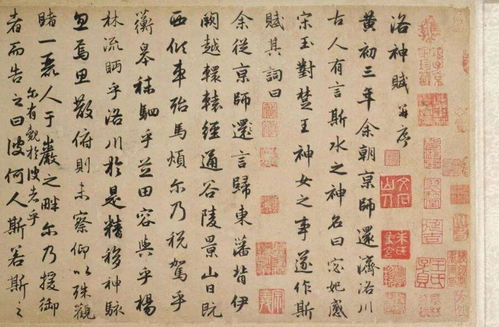 洛神賦 并序
黃初三年余朝京師還濟洛川
古人有言斯水之神名曰宓妃感
宋玉對楚王神女之事遂作斯
賦其詞曰
余從京師還言歸東藩背伊
闕越轘轅經通谷陵景山日既
西傾車殆馬煩尔乃稅駕乎
蘅皋秣駟乎芝田容與乎楊
林流眄乎洛川於是精移神駭
忽焉思散俯則未察仰以殊觀
睹一麗人于巖之畔尔乃援御
尔有覿於彼者乎
者而告之曰彼何人斯若斯之